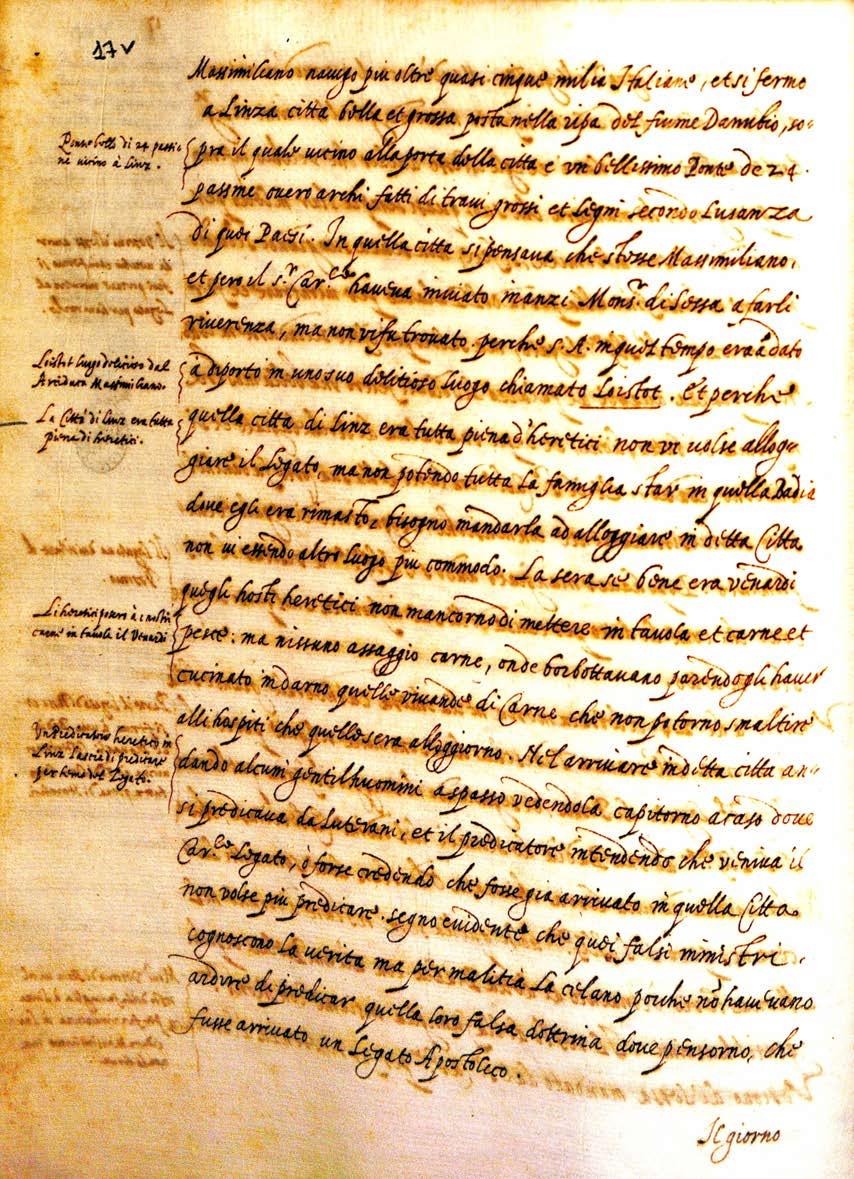 17v
Massimiliano navigo piu oltre quasi cinque milia Italiane, et si fermo
a Linza citta bella et grossa posta nella ripa del fiume Danubio, so-
pra il quale vicino alla porta della citta è vn bellissimo Ponte de 24.
passine overo archi fatti di travi grossi et Legni secondo Lusanza
di quei Paesi. In quella citta si pensava che stesse Massimiliano,
et pero il s.r Car.le haveva inviato inanzi Mons.r di Sessa a farli
riverenza, ma non vi fu trovato perche S. A. in quel tempo era adato
à diporto in uno suo delitioso luogo chiamato Loistot. Et perche
quella citta di Linz era tutta piena d'heretici non vi volse allog-
giare il Legato, ma non potendo tutta La famiglia star in quella Badia
dove egli era rimasto, bisogno mandarla ad alloggiare in detta Citta
non vi essendo altro luogo piu commodo. La sera se bene era venardi
quegli hosti heretici non mancorno di mettere in tavola et carne et
pesce: ma nissuno assaggio carne, onde borbottavano parendogli haver
cucinato indarno quelle vivande di Carne che non potorno smaltire
alli hospiti che quella sera alloggiorno. Nel arrivare in detta citta an-
dando alcuni gentilhuomini a spasso vedendola capitorno a caso dove
si predicava da Luterani, et il predicatore intendendo che veniva il
Car.le Legato, ò forse credendo che fosse gia arrivato in quella Citta
non volse piu predicare. segno evidente che quei falsi ministri
cognoscono La verita ma per malitia La celano poiche nõ havevano
ardire di predicar quella loro falsa dottrina dove pensorno, che
fusse arrivato un Legato Apostolico.
Il giorno
Ponte bello di 24 passi-
ne vicino à Linz.
Loistot luogo delicioso dal
Arciduca Massimiliano.
La Città di Linz era tutta
piena di heretici.
Li heretici posero à i nostri
carne in tavola il Venardi
Un Predicatore heretico in
Linz lascia di predicare
per tema del Legato.